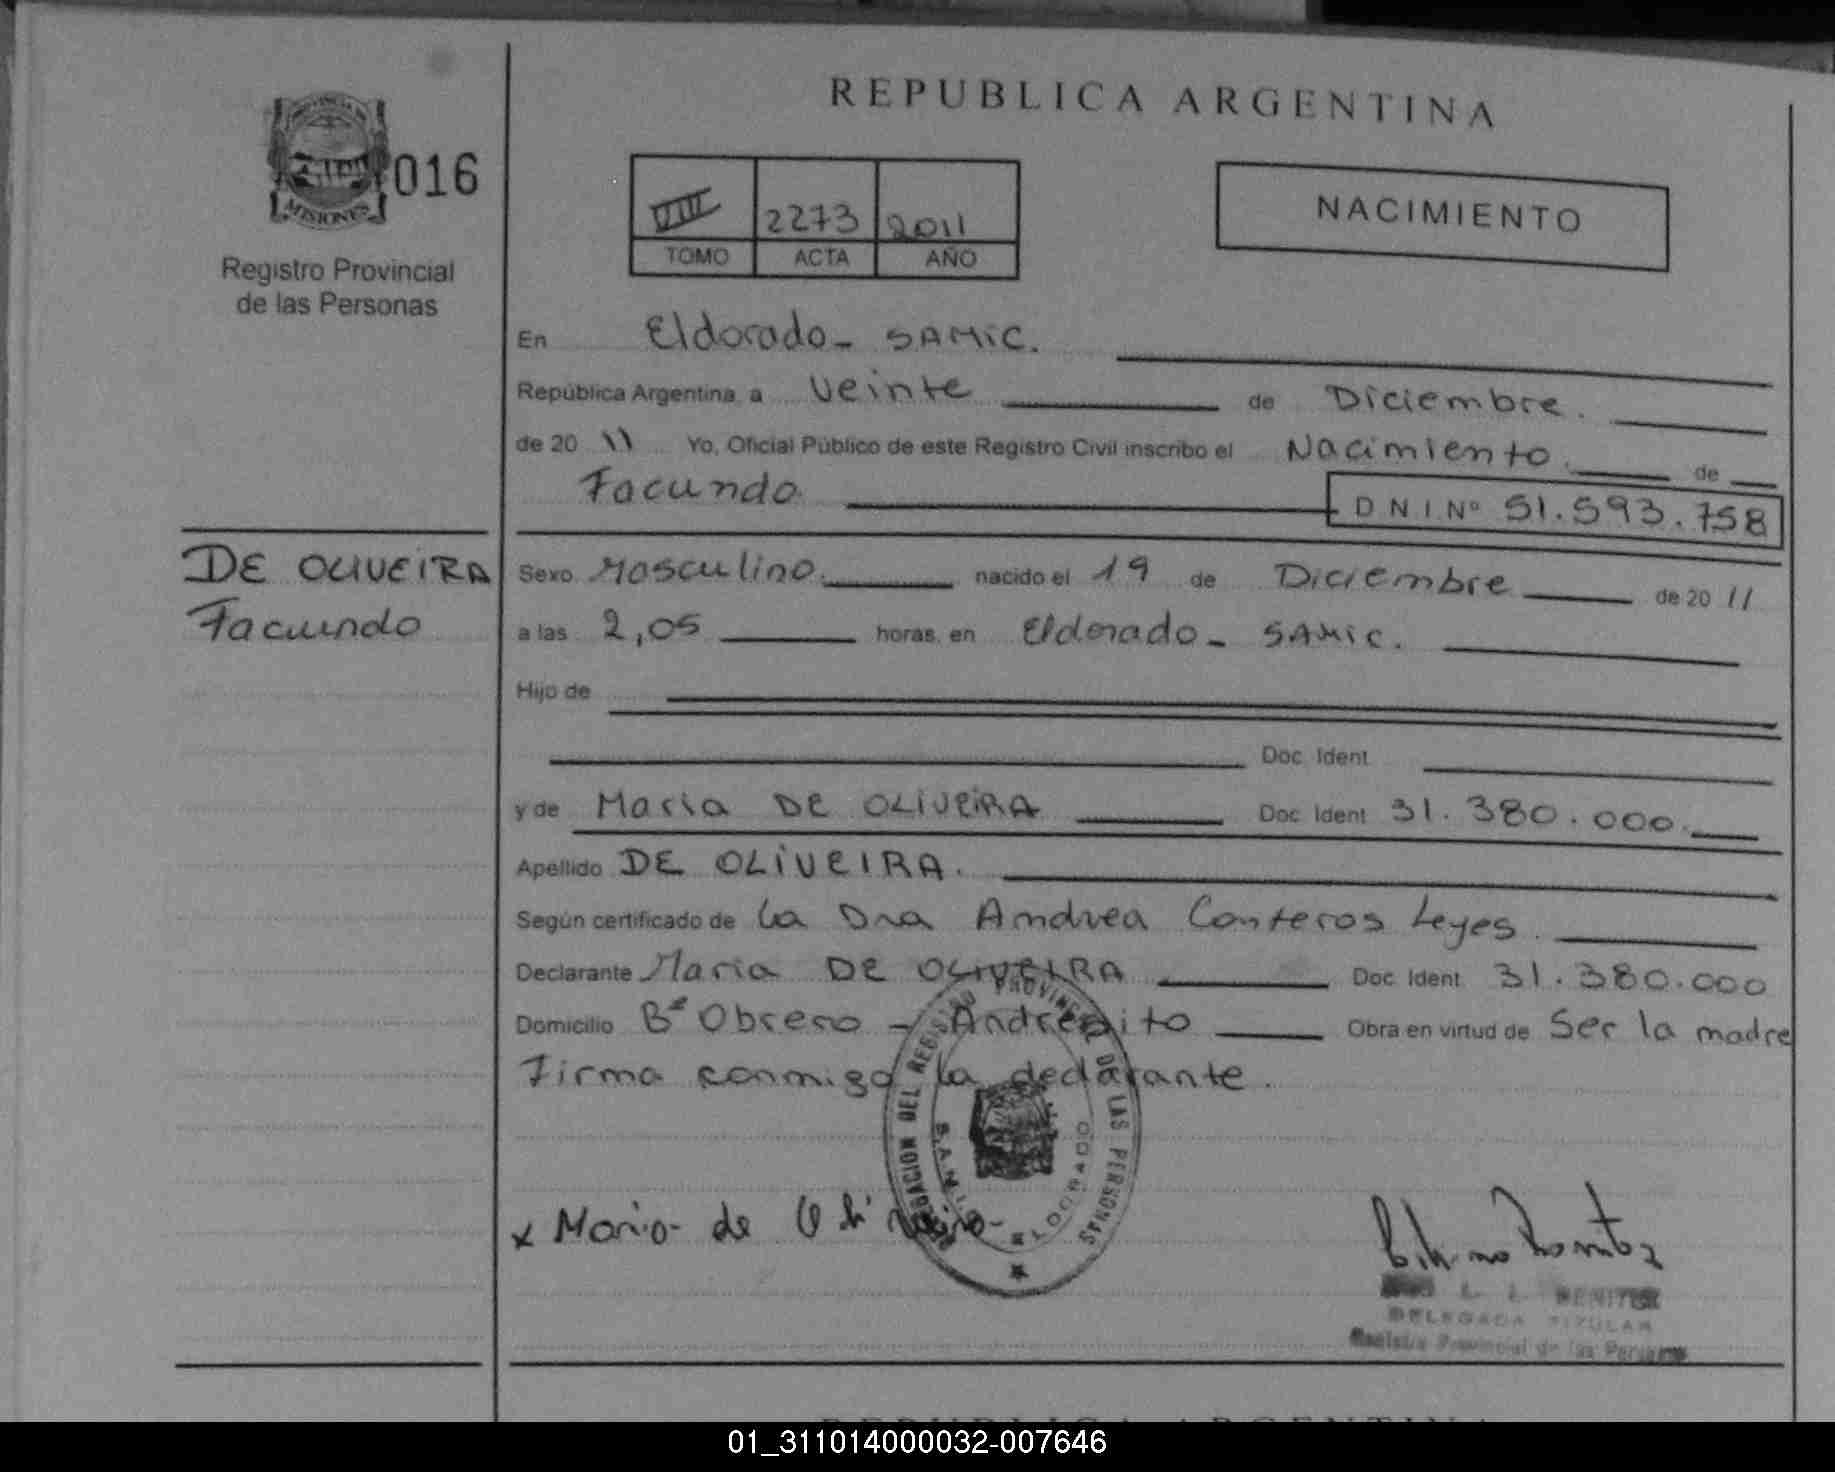 REPUBLICA ARGENTINA
PROVINCIA DE
MISIONES
016
Registro Provincial
de las Personas
VIII 2273 2011
TOMO ACTA AÑO
NACIMIENTO
En Eldorado - SAMIC.
República Argentina, a Veinte de Diciembre.
de 20 11 Yo, Oficial Público de este Registro Civil inscribo el Nacimiento de
Facundo D N I Nº 51.593.758
DE OLIVEIRA
Facundo
Sexo Masculino. nacido el 19 de Diciembre de 20 11
a las 2,05 horas, en Eldorado - SAMIC.
Hijo de
Doc. Ident.
y de Maria DE OLIVEIRA Doc. Ident. 31.380.000.
Apellido DE OLIVEIRA.
Según certificado de la Dra Andrea Conteros Leyes.
Declarante Maria DE OLIVEIRA Doc. Ident. 31.380.000
Domicilio Bº Obrero - Andresito Obra en virtud de Ser la madre
Firma conmigo la declarante.
DELEGACION DEL REGISTRO PROVINCIAL DE LAS PERSONAS
S.A.M.I.C. ELDORADO
x Maria de Oliveira
L. L. BENITEZ
DELEGADA TITULAR
Registro Provincial de las Personas
REPUBLICA ARGENTINA
01_311014000032-007646